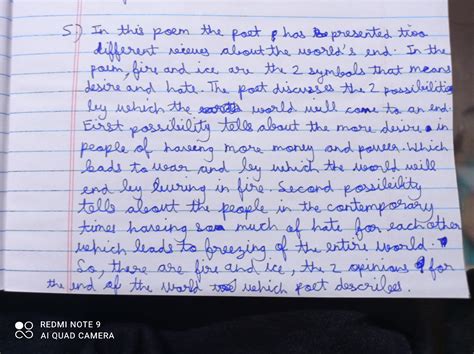 5) In this poem the poet has presented two
different views about the world's end. In the
poem, fire and ice are the 2 symbols that means
desire and hate. The poet discusses the 2 possibilities
by which the world will come to an end.
First possibility tells about the more desire in
people of having more money and power. Which
leads to war and by which the world will
end by burning in fire. Second possibility
tells about the people in the contemporary
times having so much of hate for each other
which leads to freezing of the entire world.
So, there are fire and ice, the 2 opinions for
the end of the world which poet describes.
REDMI NOTE 9
AI QUAD CAMERA